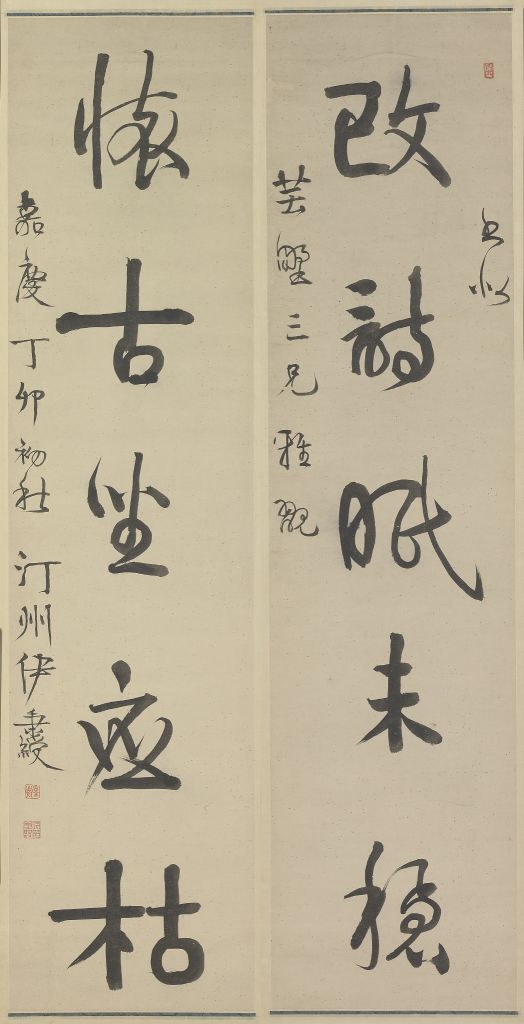 書似
改詩眠未穩
芸墅三兄雅
懷古坐應枯
嘉慶丁卯初秋汀州伊秉綬